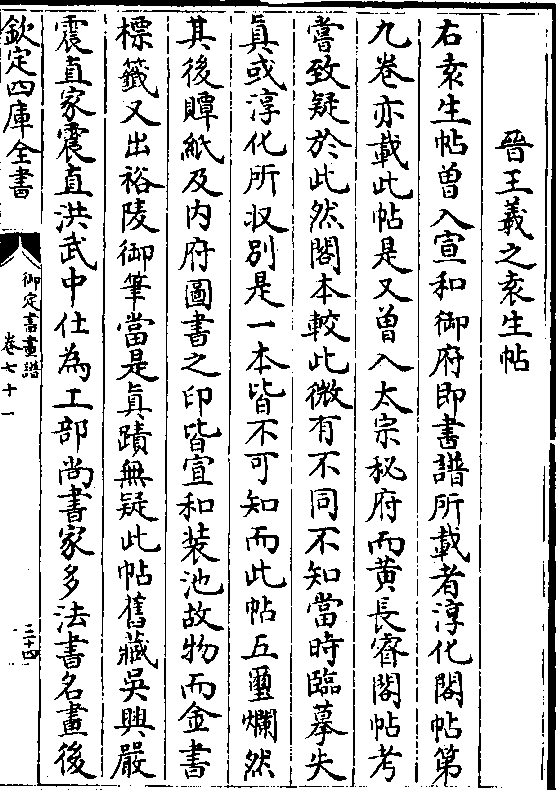 晉王羲之袁生帖
右袁生帖曽入宣和御府即書譜所載者淳化閣帖第
九卷亦載此帖是又曽入太宗秘府而黄長睿閣帖考
嘗致疑於此然閣本較此微有不同不知當時臨摹失
真或淳化所収别是一本皆不可知而此帖五璽爛然
其後贉紙及内府圖書之印皆宣和裝池故物而金書
標籖又出裕陵御筆當是真蹟無疑此帖舊藏吳興嚴
震直家震直洪武中仕為工部尚書家多法書名畫後
欽定四庫全書
御定書畫譜
卷七十一
三十四